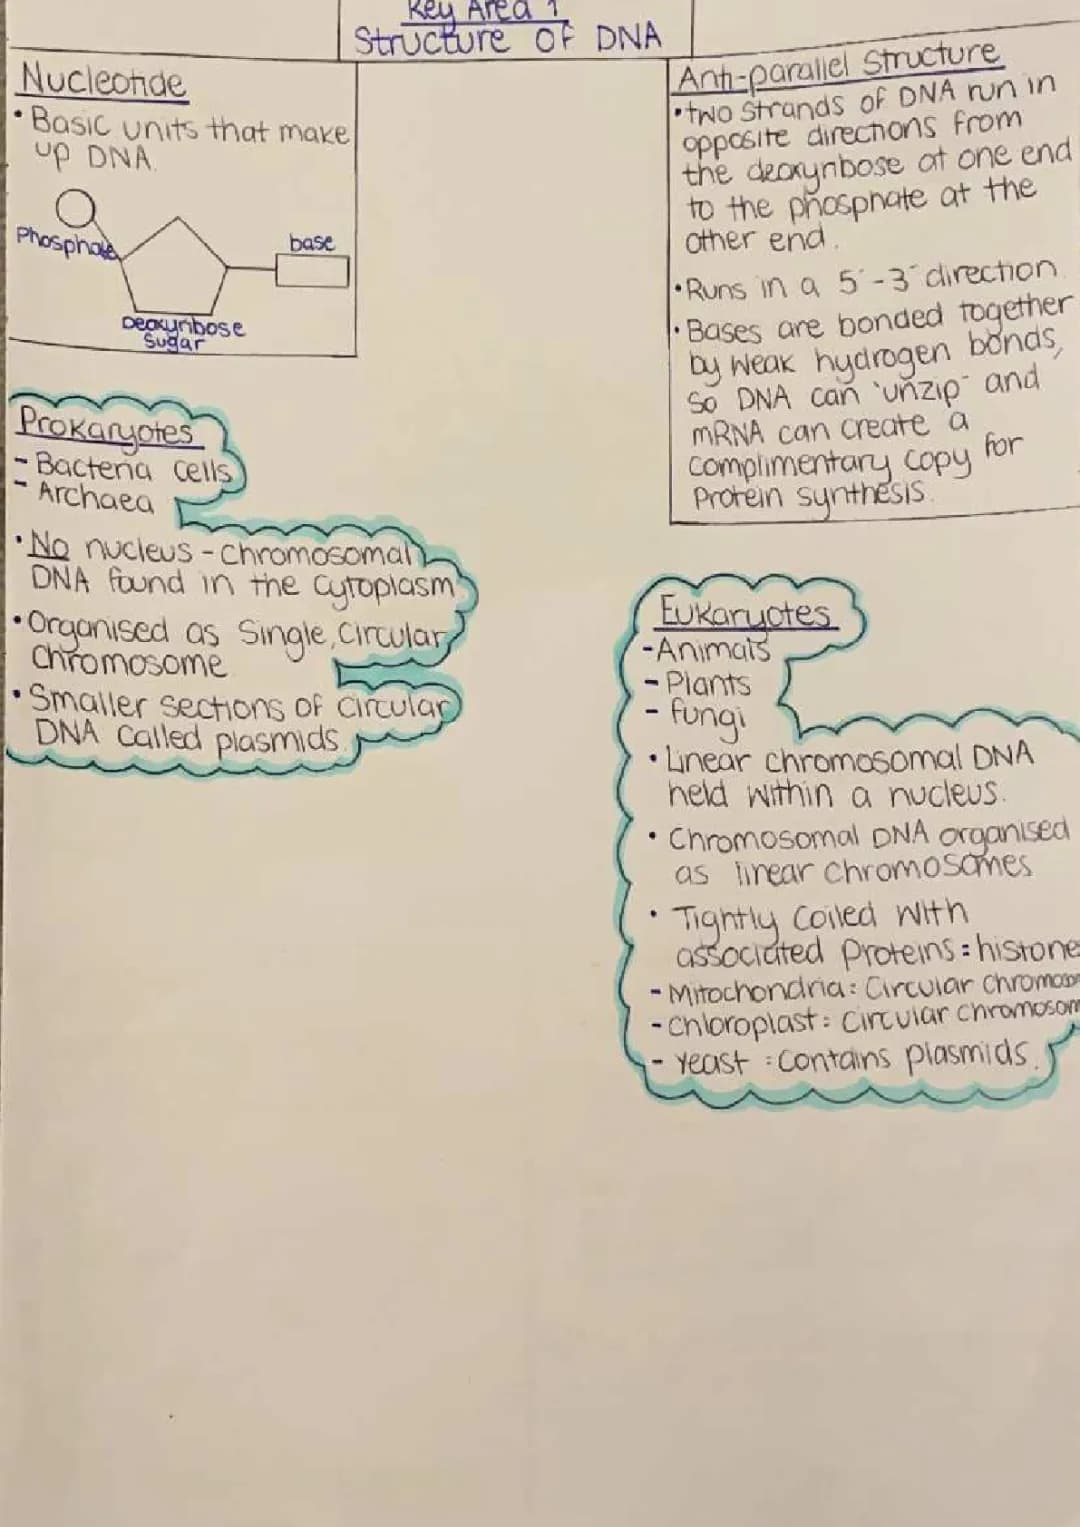 Key Area 1
Structure OF DNA
Nucleotide
• Basic units that make
up DNA.
Phosphate
base
Deoxyribose
Sugar
Anti-parallel Structure
• two strands of DNA run in
opposite directions from
the deoxyribose at one end
to the phosphate at the
other end.
• Runs in a 5´-3´ direction.
• Bases are bonded together
by weak hydrogen bonds,
so DNA can 'unzip' and
mRNA can create a
complimentary copy for
Protein synthesis.
Prokaryotes
- Bacteria cells
- Archaea
• No nucleus - chromosomal
DNA found in the cytoplasm
• Organised as Single, Circular
Chromosome
• Smaller sections of circular
DNA Called plasmids.
Eukaryotes
- Animals
- Plants
- fungi
• Linear chromosomal DNA
held within a nucleus.
• Chromosomal DNA organised
as linear chromosomes
• Tightly Coiled With
associated Proteins = histone
- Mitochondria: Circular Chromoso
- Chloroplast: Circular Chromosom
- Yeast : Contains plasmids.